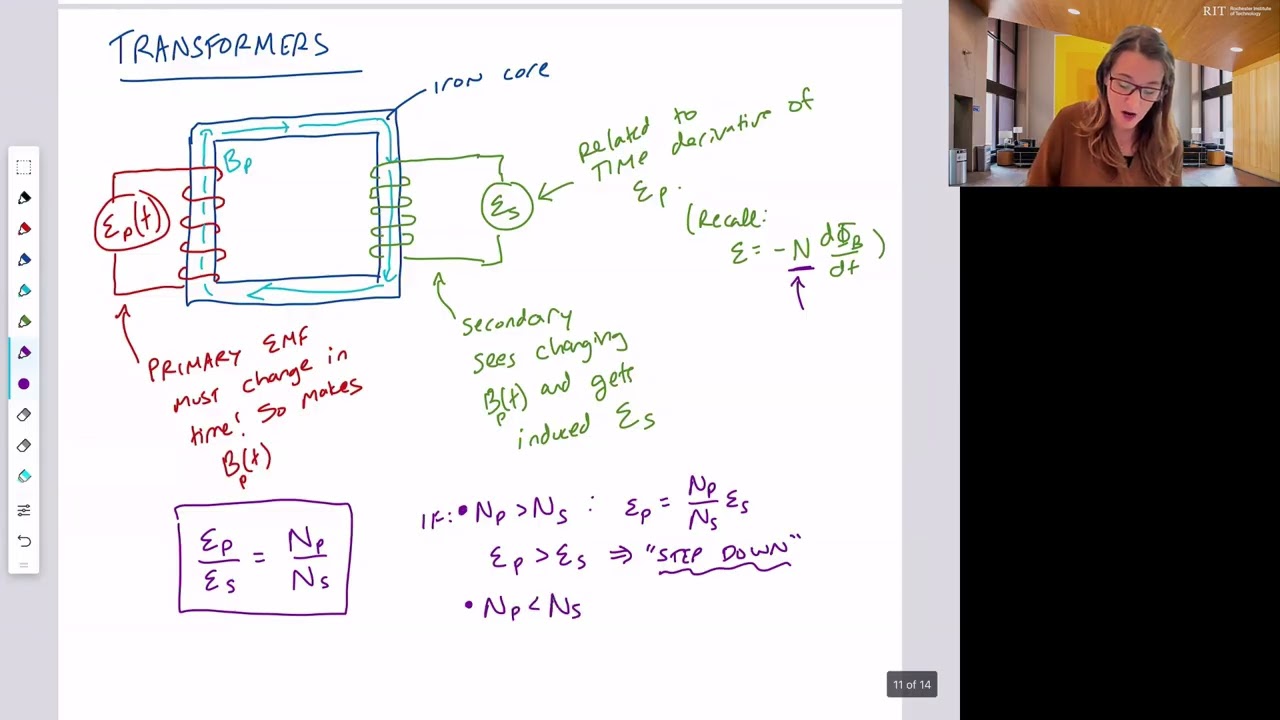 TRANSFORMERS
IRON CORE
Related to
TIME derivative of
Ɛp.
(Recall:
Ɛ = -N dΦB/dt )
Bp
Ɛp(t)
Ɛs
PRIMARY EMF
must change in
time! So makes
Bp(t)
Secondary
sees changing
Bp(t) and gets
induced Ɛs
Ɛp/Ɛs = Np/Ns
IF: • Np > Ns : Ɛp = Np/Ns Ɛs
Ɛp > Ɛs ⇒ "STEP DOWN"
• Np < Ns
11 of 14
RIT Rochester Institute
of Technology